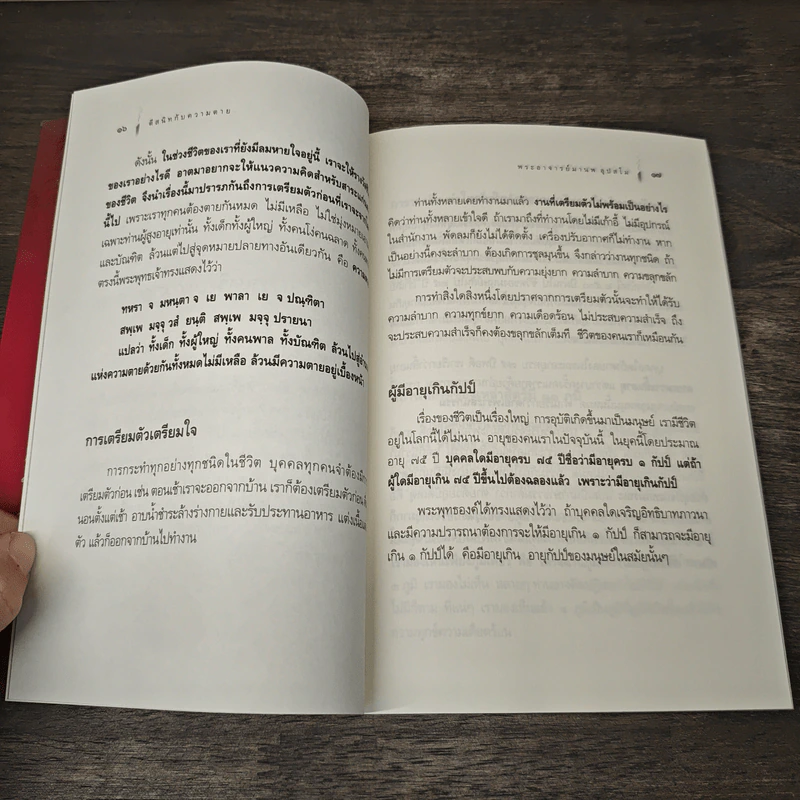 ๑๖ ตีสนิทกับความตาย
ดังนั้น ในช่วงชีวิตของเราที่ยังมีลมหายใจอยู่นี้ เราจะให้
ของเราอย่างไรดี อาตมาอยากจะให้แนวความคิดสำหรับสาระแก่น
ของชีวิต จึงนำเรื่องนี้มาปรารภกันถึงการเตรียมตัวก่อนที่เราจะ
นี้ไป เพราะเราทุกคนต้องตายกันหมด ไม่มีเหลือ ไม่ใช่มุ่งหมาย
เฉพาะท่านผู้สูงอายุเท่านั้น ทั้งเด็กทั้งผู้ใหญ่ ทั้งคนโง่คนฉลาด ทั้ง
และบัณฑิต ล้วนแต่ไปสู่จุดหมายปลายทางอันเดียวกัน คือ
ตรงนี้พระพุทธเจ้าทรงแสดงไว้ว่า
ทหรา จ มหนฺตา จ เย พาลา เย จ ปณฺฑิตา
สพฺเพ มจฺจุ วสํ ยนฺติ สพฺเพ มจฺจุ ปรายนา
แปลว่า ทั้งเด็ก ทั้งผู้ใหญ่ ทั้งคนพาล ทั้งบัณฑิต ล้วนไปสู่
แห่งความตายด้วยกันทั้งหมดไม่มีเหลือ ล้วนมีความตายอยู่เบื้องหน้า
การเตรียมตัวเตรียมใจ
การกระทำทุกอย่างทุกชนิดในชีวิต บุคคลทุกคนจำต้อง
เตรียมตัวก่อน เช่น ตอนเช้าเราจะออกจากบ้าน เราก็ต้องเตรียมตัว
นอนตั้งแต่เช้า อาบน้ำชำระล้างร่างกายและรับประทานอาหาร แต่งเนื้อ
ตัว แล้วก็ออกจากบ้านไปทำงาน
พระอาจารย์มานพ อุปสโม ๑๗
ท่านทั้งหลายเคยทำงานมาแล้ว งานที่เตรียมตัวไม่พร้อมเป็นอย่างไร
คิดว่าท่านทั้งหลายเข้าใจดี ถ้าเรามาถึงที่ทำงานโดยไม่มีเก้าอี้ ไม่มีอุปกรณ์
ในสำนักงาน พัดลมก็ยังไม่ได้ติดตั้ง เครื่องปรับอากาศก็ไม่ทำงาน หาก
เป็นอย่างนี้คงจะลำบาก ต้องเกิดการชุลมุนขึ้น จึงกล่าวว่างานทุกชนิด ถ้า
ไม่มีการเตรียมตัวจะประสบพบกับความยุ่งยาก ความลำบาก ความขลุกขลัก
การทำสิ่งใดสิ่งหนึ่งโดยปราศจากการเตรียมตัวนั้นจะทำให้ได้รับ
ความลำบาก ความทุกข์ยาก ความเดือดร้อน ไม่ประสบความสำเร็จ ถึง
จะประสบความสำเร็จก็คงต้องขลุกขลักเต็มที ชีวิตของคนเราก็เหมือนกัน
ผู้มีอายุเกินกัปป์
เรื่องของชีวิตเป็นเรื่องใหญ่ การอุบัติเกิดขึ้นมาเป็นมนุษย์ เรามีชีวิต
อยู่ในโลกนี้ได้ไม่นาน อายุของคนเราในปัจจุบันนี้ ในยุคนี้โดยประมาณ
อายุ ๗๕ ปี บุคคลใดมีอายุครบ ๗๕ ปีชื่อว่ามีอายุครบ ๑ กัปป์ แต่ถ้า
ผู้ใดมีอายุเกิน ๗๕ ปีขึ้นไปต้องฉลองแล้ว เพราะว่ามีอายุเกินกัปป์
พระพุทธองค์ได้ทรงแสดงไว้ว่า ถ้าบุคคลใดเจริญอิทธิบาทภาวนา
และมีความปรารถนาต้องการจะให้มีอายุเกิน ๑ กัปป์ ก็สามารถจะมีอายุ
เกิน ๑ กัปป์ได้ คือมีอายุเกิน อายุกัปป์ของมนุษย์ในสมัยนั้นๆ